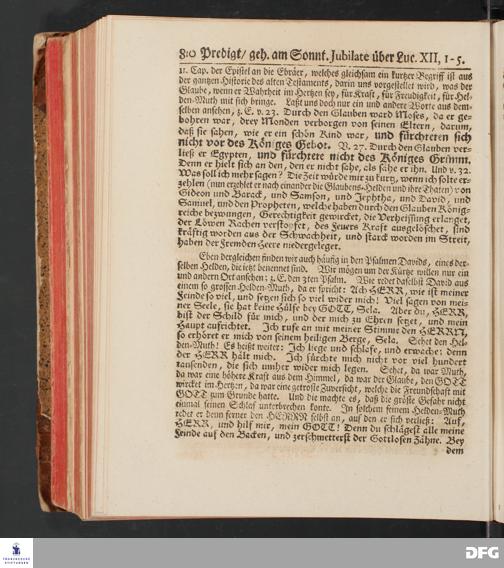 810 Predigt/ geh. am Sonnt. Jubilate über Luc. XII, 1-5.
11. Cap. der Epistel an die Ebräer, welches gleichsam ein kurtzer Begriff ist aus
der gantzen Historie des alten Testaments, darin uns vorgestellet wird, was der
Glaube, wenn er Wahrheit im Hertzen sey, für Kraft, für Freudigkeit, für Hel-
den-Muth mit sich bringe. Laßt uns doch nur ein und andere Worte aus dem-
selben ansehen, z. E. v. 23. Durch den Glauben ward Moses, da er ge-
bohren war, drey Monden verborgen von seinen Eltern, darum,
daß sie sahen, wie er ein schön Kind war, und fürchteten sich
nicht vor des Königes Gebot. V. 27. Durch den Glauben ver-
ließ er Egypten, und fürchtete nicht des Königes Grimm.
Denn er hielt sich an den, den er nicht sahe, als sähe er ihn. Und v. 32.
Was soll ich mehr sagen? Die Zeit würde mir zu kurtz, wenn ich solte er-
zehlen (nun erzehlet er nach einander die Glaubens-Helden und ihre Thaten) von
Gideon und Barack, und Samson, und Jephtha, und David, und
Samuel, und den Propheten, welche haben durch den Glauben König-
reiche bezwungen, Gerechtigkeit gewircket, die Verheissung erlanget,
der Löwen Rachen verstopfet, des Feuers Kraft ausgelöschet, sind
kräftig worden aus der Schwachheit, und starck worden im Streit,
haben der Fremden Heere niedergeleget.
Eben dergleichen finden wir auch häufig in den Psalmen Davids, eines der-
selben Helden, die ietzt benennet sind. Wir mögen um der Kürtze willen nur ein
und andern Ort ansehen: z. E. den 3ten Psalm. Wie redet daselbst David aus
einem so grossen Helden-Muth, da er spricht: Ach HERR, wie ist meiner
Feinde so viel, und setzen sich so viel wider mich! Viel sagen von mei-
ner Seele, sie hat keine Hülfe bey GOTT, Sela. Aber du, HERR,
bist der Schild für mich, und der mich zu Ehren setzet, und mein
Haupt aufrichtet. Ich rufe an mit meiner Stimme den HERRN,
so erhöret er mich von seinem heiligen Berge, Sela. Sehet den Hel-
den-Muth! Es heißt weiter: Ich liege und schlafe, und erwache: denn
der HERR hält mich. Ich fürchte mich nicht vor viel hundert
tausenden, die sich umher wider mich legen. Sehet, da war Muth,
da war eine höhere Kraft aus dem Himmel, da war der Glaube, den GOTT
wircket im Hertzen, da war eine getroste Zuversicht, welche die Freundschaft mit
GOTT zum Grunde hatte. Und die machte es, daß die größte Gefahr nicht
einmal seinen Schlaf unterbrechen konte. In solchem seinem Helden-Muth
redet er denn ferner den HERRN selbst an, auf den er sich verließ: Auf,
HERR, und hilf mir, mein GOTT! Denn du schlägest alle meine
Feinde auf den Backen, und zerschmetterst der Gottlosen Zähne. Bey
dem
FRANCKESCHE
STIFTUNGEN
DFG